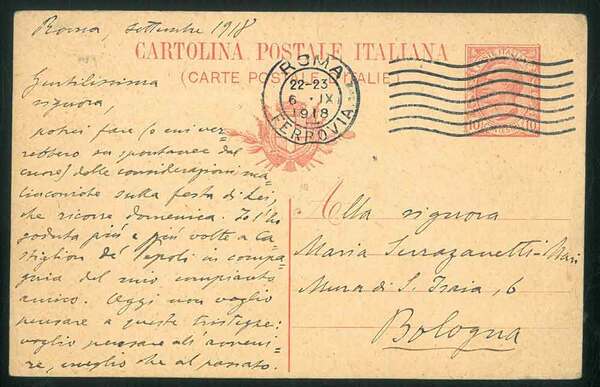 Roma settembre 1918
CARTOLINA POSTALE ITALIANA
(CARTE POSTALE D'ITALIE)
ROMA
22-23
6 IX
1918
FERROVIA
10 10
Gentilissima
signora,
potrei fare (o mi ver=
rebbero su spontanee dal
cuore) delle considerazioni ma=
linconiche sulla festa di Lei,
che ricorre domenica. Io l'ho
goduta più e più volte a Ca=
stiglion de' Pepoli in compa=
gnia del mio compianto
amico. Oggi non voglio
pensare a queste tristezze:
voglio pensare all'avveni=
re, meglio che al passato.
Alla signora
Maria Serrazanetti-
Mura di S. Isaia, 6
Bologna